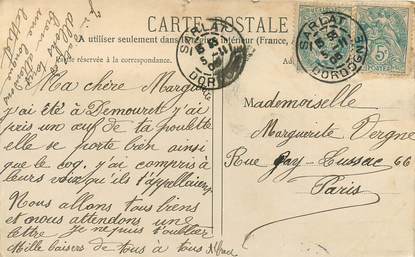 CARTE POSTALE
A utiliser seulement dans intérieur (France,
réservée à la correspondance.
SARLAT
DORDOGNE
SARLAT
DORDOGNE
5c
Ma chère Marguerite
j'ai été à Demouret j'ai
pris un œuf de ta poulette
elle se porte bien ainsi
que le coq. j'ai compris à
leurs voix qu'ils t'appellaient
Nous allons tous biens
et nous attendons une
lettre je ne puis t'oublier
Mille baisers de tous à tous
Mademoiselle
Marguerite Vergne
Rue Gay-Lussac 66
Paris